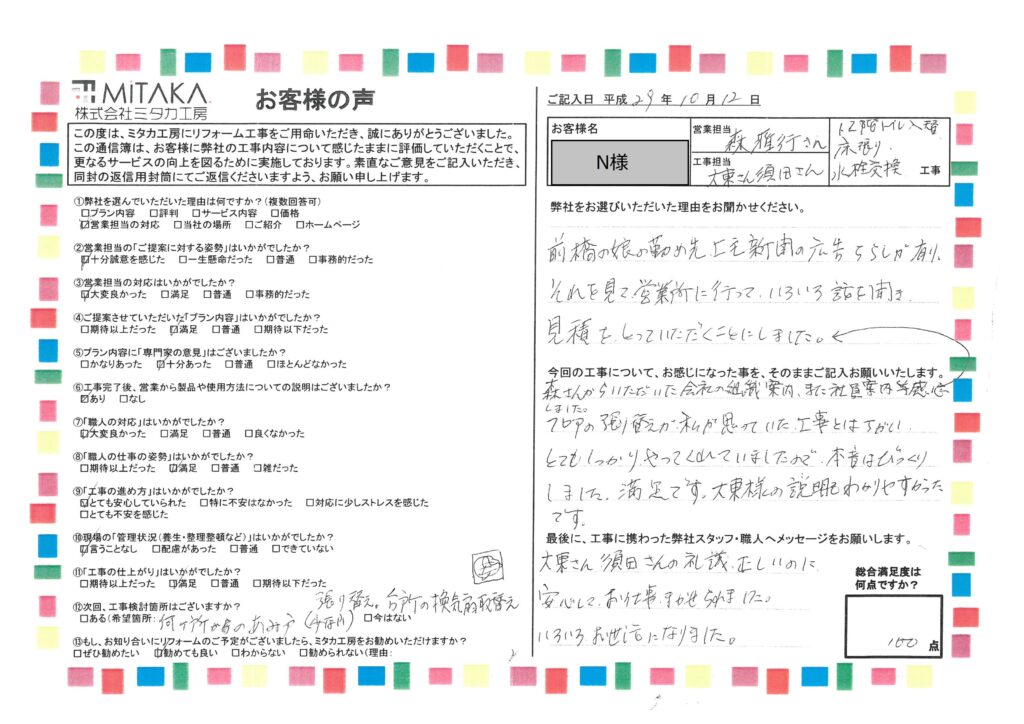 MiTAKA
株式会社ミタカ工房
お客様の声
この度は、ミタカ工房にリフォーム工事をご用命いただき、誠にありがとうございました。
この通信簿は、お客様に弊社の工事内容について感じたままに評価していただくことで、
更なるサービスの向上を図るために実施しております。素直なご意見をご記入いただき、
同封の返信用封筒にてご返信くださいますよう、お願い申し上げます。
①弊社を選んでいただいた理由は何ですか?(複数回答可)
□プラン内容 □評判 □サービス内容 □価格
☑営業担当の対応 □当社の場所 □ご紹介 □ホームページ
②営業担当の「ご提案に対する姿勢」はいかがでしたか?
☑十分誠意を感じた □一生懸命だった □普通 □事務的だった
③営業担当の対応はいかがでしたか?
☑大変良かった □満足 □普通 □事務的だった
④ご提案させていただいた「プラン内容」はいかがでしたか?
□期待以上だった ☑満足 □普通 □期待以下だった
⑤プラン内容に「専門家の意見」はございましたか?
□かなりあった ☑十分あった □普通 □ほとんどなかった
⑥工事完了後、営業から製品や使用方法についての説明はございましたか?
☑あり □なし
⑦「職人の対応」はいかがでしたか?
☑大変良かった □満足 □普通 □良くなかった
⑧「職人の仕事の姿勢」はいかがでしたか?
□期待以上だった ☑満足 □普通 □雑だった
⑨「工事の進め方」はいかがでしたか?
☑とても安心していられた □特に不安はなかった □対応に少しストレスを感じた
□とても不安を感じた
⑩現場の「管理状況(養生・整理整頓など)」はいかがでしたか?
☑言うことなし □配慮があった □普通 □できていない
⑪「工事の仕上がり」はいかがでしたか?
□期待以上だった ☑満足 □普通 □期待以下だった
⑫次回、工事検討箇所はございますか?
張り替え。台所の換気扇取替え
□ある(希望箇所: 何ヶ所かのあみ戸 □今はない
⑬もし、お知り合いにリフォームのご予定がございましたら、ミタカ工房をお勧めいただけますか?
□ぜひ勧めたい ☑勧めても良い □わからない □勧められない(理由:
ご記入日 平成 29 年 10 月 12 日
お客様名
N様
営業担当
森 雅行さん
工事担当
大東さん須田さん
床張り
水栓交換 工事
弊社をお選びいただいた理由をお聞かせください。
前橋の娘の勤め先、上毛新聞の広告ちらしが有り、
それを見て営業所に行って、いろいろ話を聞き、
見積をとっていただくことにしました。
今回の工事について、お感じになった事を、そのままご記入お願いいたします。
森さんからいただいた会社の組織案内、また社員案内等感心
しました。
フロアの張り替えが、私が思っていた工事とはちがい、
とてもしっかりやってくれていましたので、本音はびっくり
しました。満足です。大東様の説明もわかりやすかった
です。
最後に、工事に携わった弊社スタッフ・職人へメッセージをお願いします。
大東さん須田さんの礼儀正しいのに、
安心して、お仕事まかせられました。
いろいろお世話になりました。
総合満足度は
何点ですか?
100 点